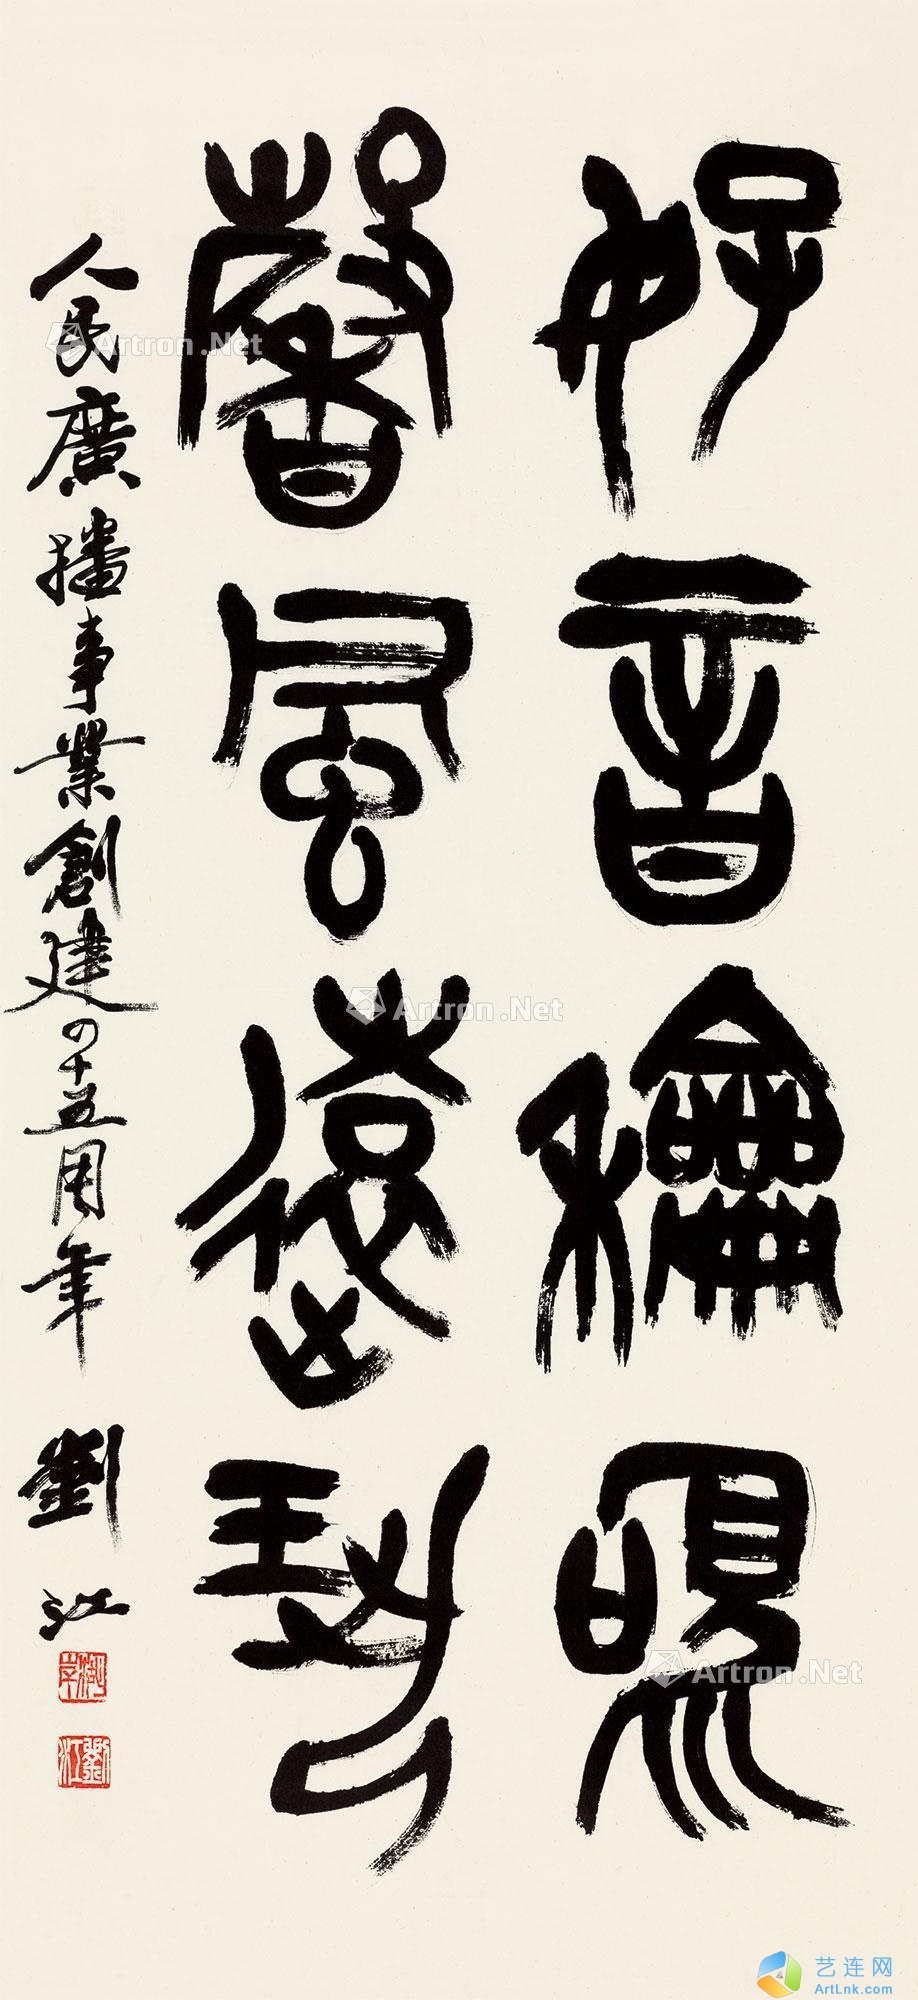 好音龢
馨風遠
人民廣播事業創建四十五周年 劉江
劉江
Artron.Net
Artron.Net
Artron.Net
艺连网
ArtLnk.com